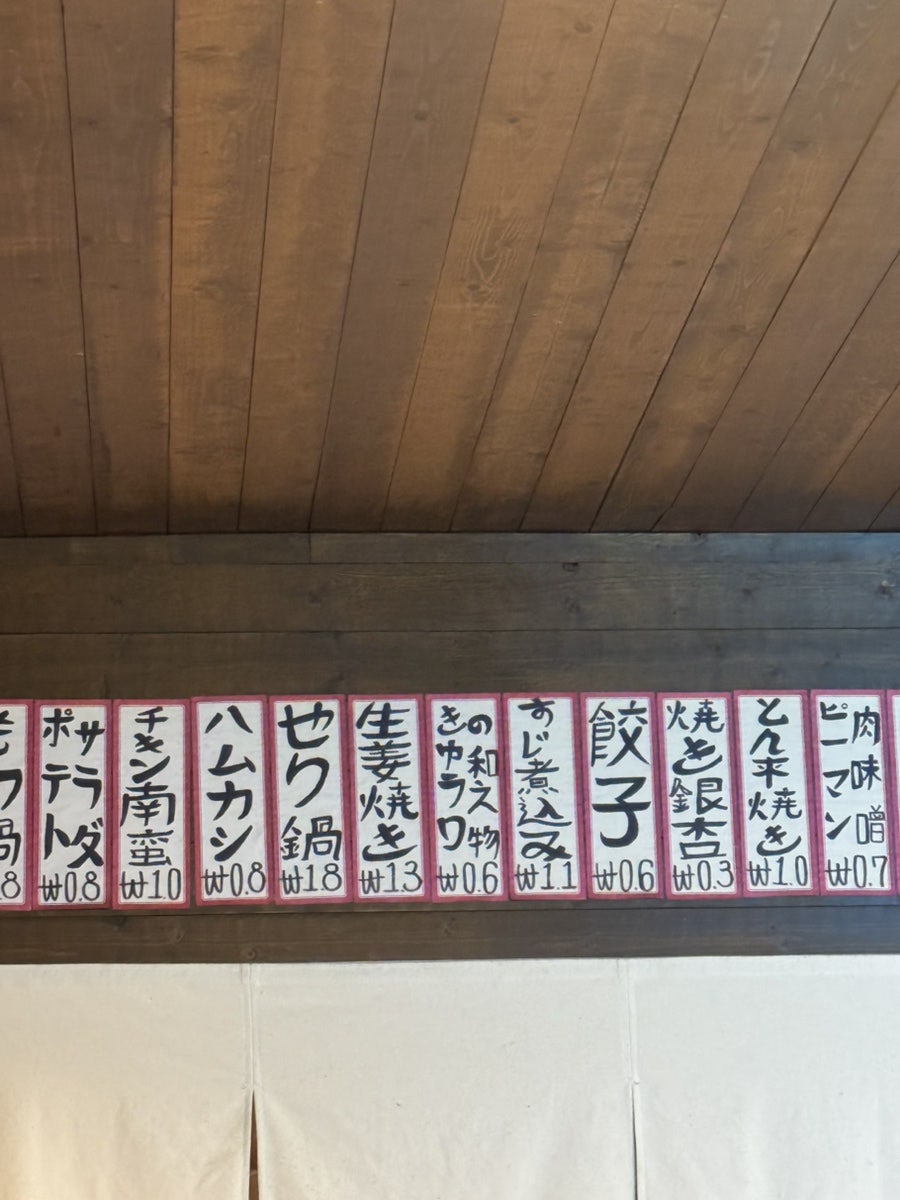 ポテト
サラダ
₩0.8
チキン南蛮
₩1.0
ハムカシ
₩0.8
セリ鍋
₩1.8
生姜焼き
₩1.3
きゅラワ
の和え物
₩0.6
すじ煮込み
₩1.1
餃子
₩0.6
焼き銀杏
₩0.3
とん平焼き
₩1.0
ピーマン
肉味噌
₩0.7